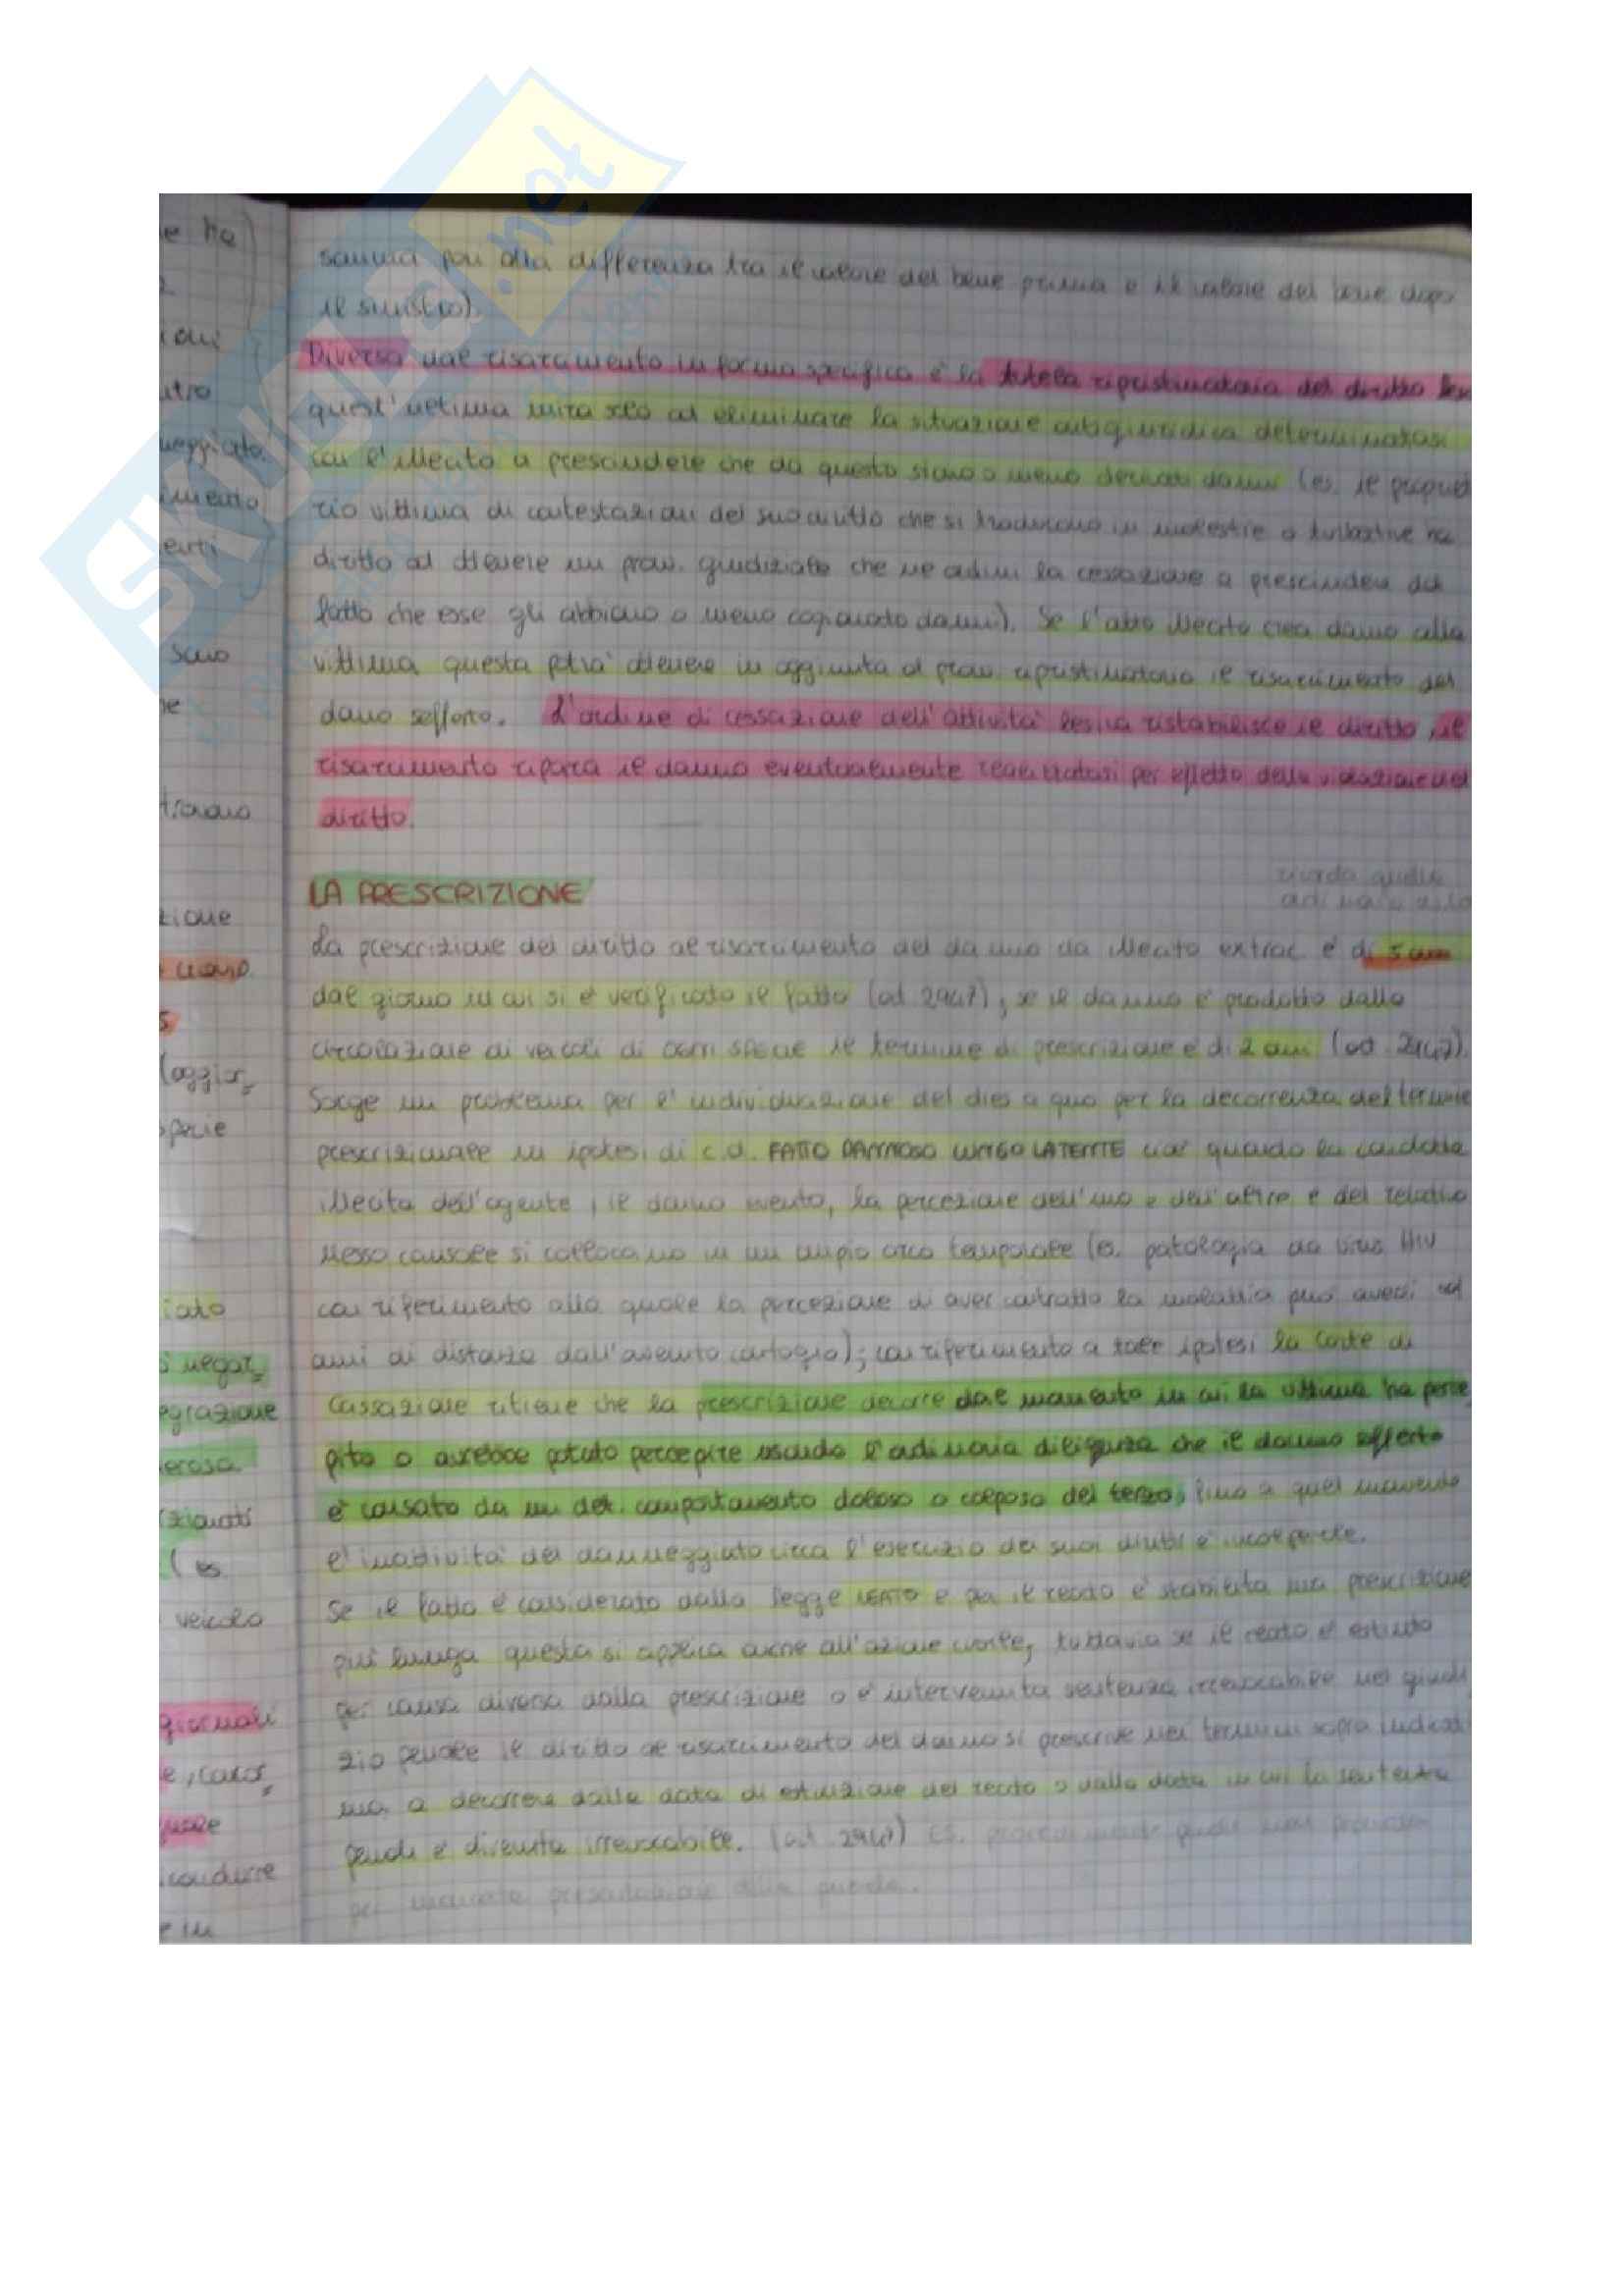 somma pari alla differenza tra il valore del bene prima e il valore del bene dopo
il sinistro).
Diversa dal risarcimento in forma specifica è la tutela ripristinatoria del diritto les
quest'ultima mira solo ad eliminare la situazione antigiuridica determinatasi
con l'illecito a prescindere che da questo siano o meno derivati danni (es. il propriet
rio vittima di contestazioni del suo diritto che si traducono in molestie o turbative ha
diritto ad ottenere un prov. giudiziale che ne ordini la cessazione a prescindere dal
fatto che esse gli abbiano o meno cagionato danni). Se l'atto illecito crea danno alla
vittima questa potrà ottenere in aggiunta al prov. ripristinatorio il risarcimento del
danno sofferto. L'ordine di cessazione dell'attività lesiva ristabilisce il diritto, il
risarcimento ripara il danno eventualmente verificatosi per effetto della violazione del
diritto.
LA PRESCRIZIONE
La prescrizione del diritto al risarcimento del danno da illecito extrac. è di 5 anni
dal giorno in cui si è verificato il fatto (art 2947); se il danno è prodotto dalla
circolazione di veicoli di ogni specie il termine di prescrizione è di 2 anni (art. 2947).
Sorge un problema per l'individuazione del dies a quo per la decorrenza del termine
prescrizionale in ipotesi di c.d. FATTO DANNOSO LUNGO LATENTE cioè quando la condotta
illecita dell'agente, il danno evento, la percezione dell'uno e dell'altro e del relativo
nesso causale si collocano in un ampio arco temporale (es. patologia da virus HIV
con riferimento alla quale la percezione di aver contratto la malattia può aversi ad
anni di distanza dall'avvenuto contagio); con riferimento a tale ipotesi la Corte di
Cassazione ritiene che la prescrizione decorre dal momento in cui la vittima ha perce
pito o avrebbe potuto percepire usando l'ordinaria diligenza che il danno sofferto
è causato da un det. comportamento doloso o colposo del terzo; fino a quel momento
l'inattività del danneggiato circa l'esercizio dei suoi diritti è incolpevole.
Se il fatto è considerato dalla legge REATO e per il reato è stabilita una prescrizione
più lunga questa si applica anche all'azione civile, tuttavia se il reato è estinto
per causa diversa dalla prescrizione o è intervenuta sentenza irrevocabile nel giudi
zio penale il diritto al risarcimento del danno si prescrive nei termini sopra indicati
ma a decorrere dalla data di estinzione del reato o dalla data in cui la sentenza
penale è divenuta irrevocabile. (art 2947) ES.
per presentazione della querela.
e ha
ioni
utro
neggiato.
imento
enti
sano
ne
trovano
zione
5
(aggior=
operie
iato
negat=
egrazione
erosa
zionati
( es
veicolo
giornali
condurre
e in
SKUOLA.net